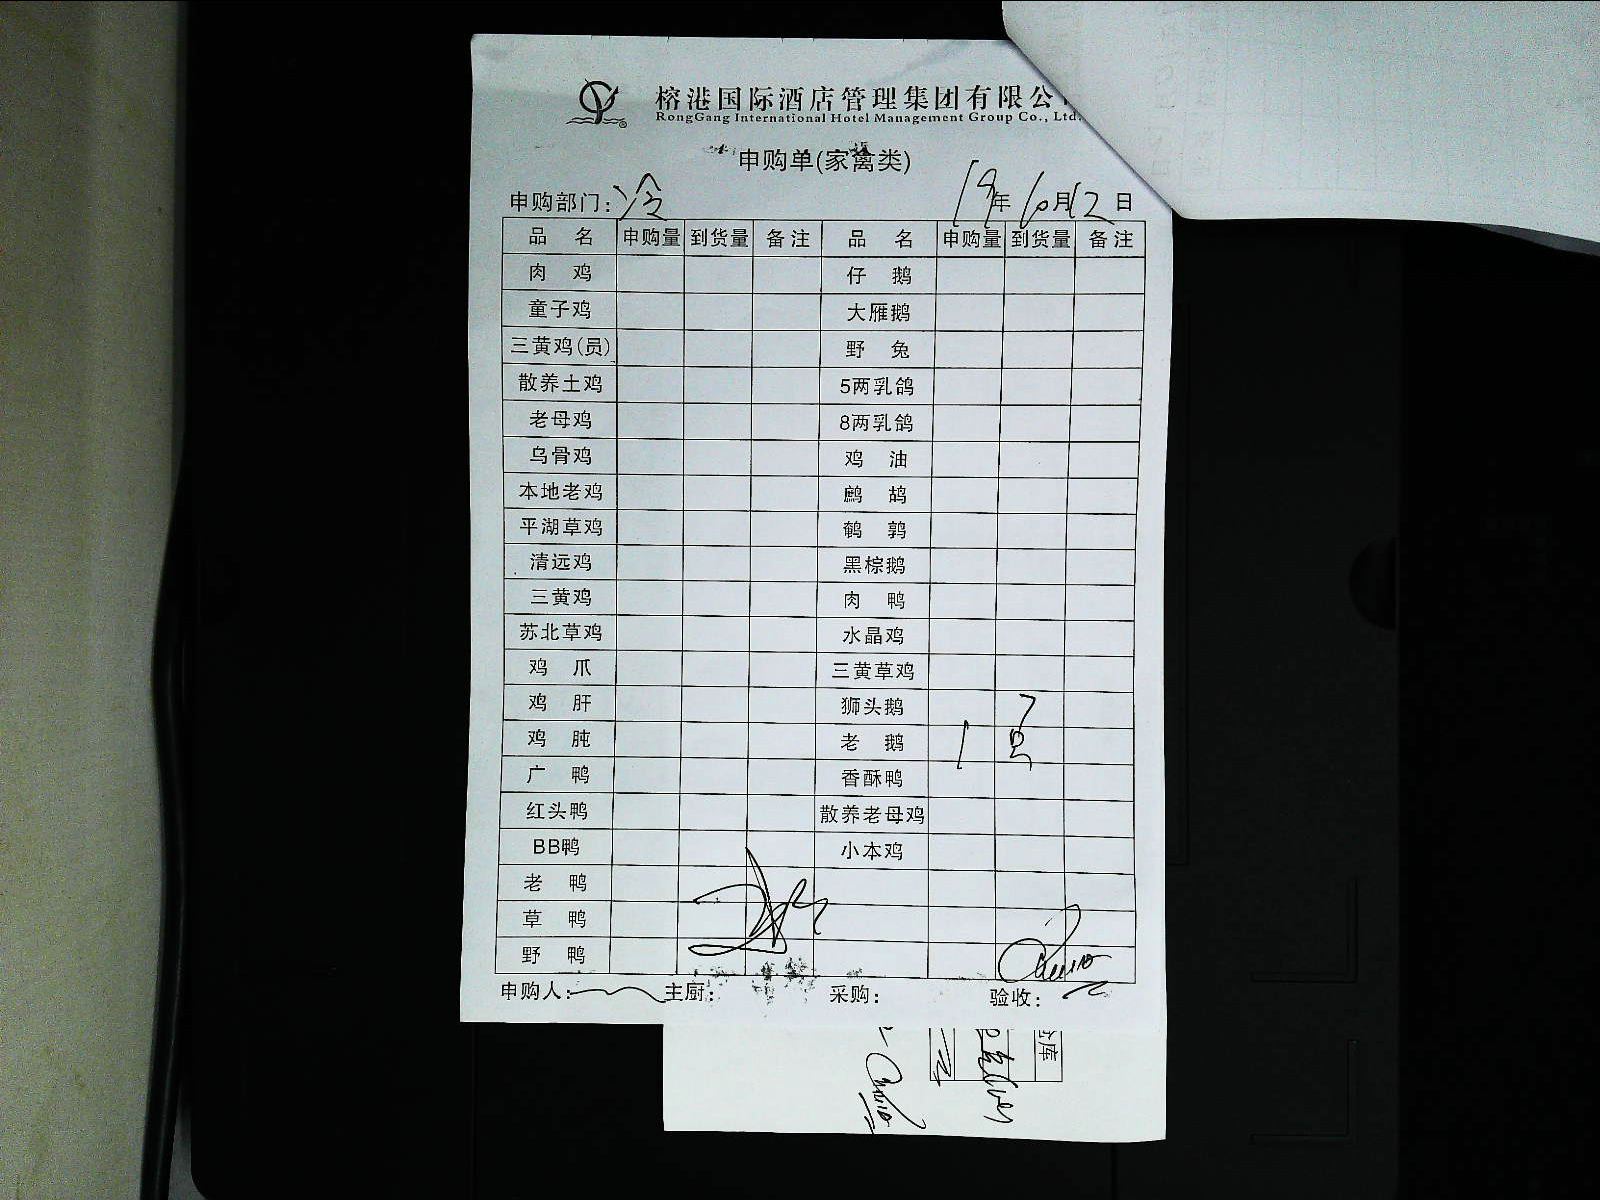 榕港国际酒店管理集团有限公
RongGang International Hotel Management Group Co., Ltd.
申购单(家禽类)
申购部门: 冷 19年 10月12日
品 名 申购量 到货量 备注 品 名 申购量 到货量 备注
肉 鸡 仔 鹅
童子鸡 大雁鹅
三黄鸡(员) 野 兔
散养土鸡 5两乳鸽
老母鸡 8两乳鸽
乌骨鸡 鸡 油
本地老鸡 鹧 鸪
平湖草鸡 鹌 鹑
清远鸡 黑棕鹅
三黄鸡 肉 鸭
苏北草鸡 水晶鸡
鸡 爪 三黄草鸡
鸡 肝 狮头鹅
鸡 肫 老 鹅 1
广 鸭 香酥鸭
红头鸭 散养老母鸡
BB鸭 小本鸡
老 鸭
草 鸭
野 鸭
申购人: 主厨: 采购: 验收: